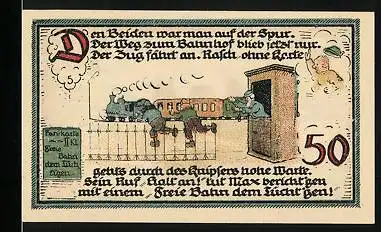 Den Beiden war man auf der Spur.
Der Weg zum Bahnhof blieb jetzt nur.
Der Zug fährt an. Rasch ohne Karte
5.
Fahrkarte
II Kl.
Freie
Bahn
dem Tüch
tigen
50
gehts durch des Knipsers hohe Warte.
Sein Ruf "Halt an!" tut Max bericht'gen
mit einem "Freie Bahn dem Tücht'gen!